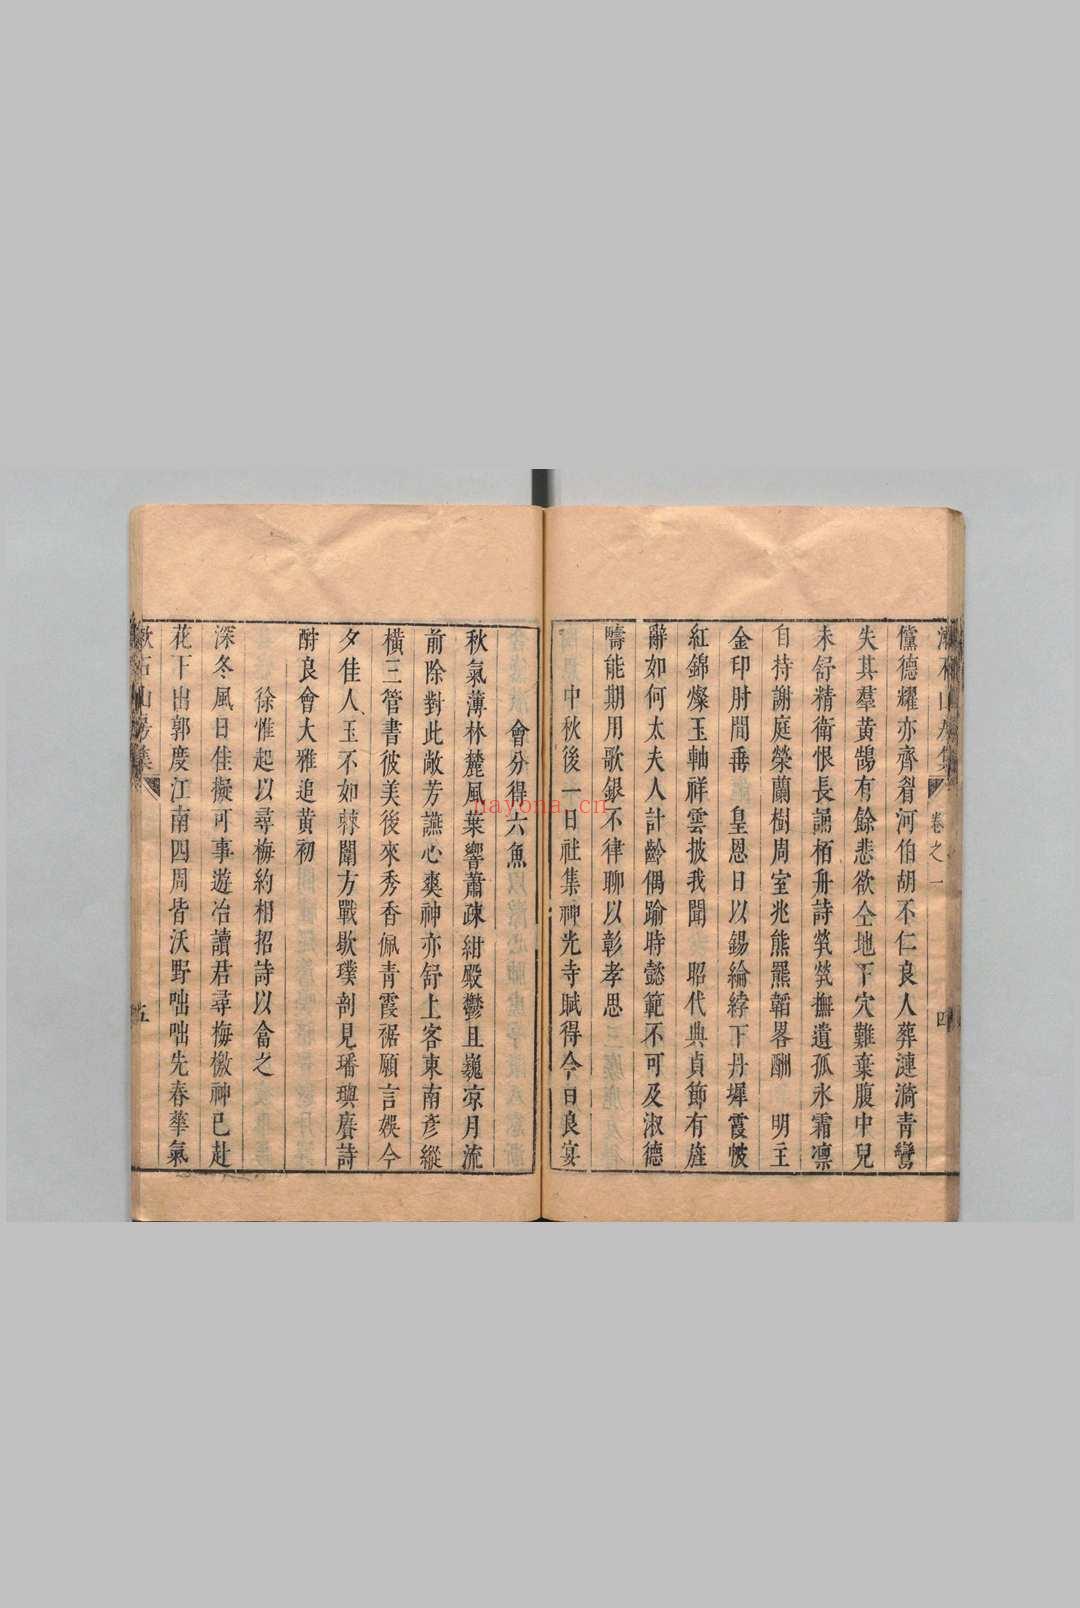 卷之一
四
儻德耀亦齊眉河伯胡不仁良人葬漣漪青鸞
失其羣黄鵠有餘悲欲仝地下穴難棄腹中兒
未舒精衛恨長誦栢舟詩煢煢撫遺孤氷霜凛
自持謝庭榮蘭樹周室兆熊羆韜畧酬 明主
金印肘間垂 皇恩日以錫綸綍下丹墀霞帔
紅錦燦玉軸祥雲披我聞 昭代典貞節有旌
辭如何太夫人計齡偶踰時懿範不可及淑德
疇能期用歌銀不律聊以彰孝思
中秋後一日社集神光寺賦得今日良宴
會分得六魚
秋氣薄林麓風葉響蕭疎紺殿鬱且巍凉月流
前除對此敞芳讌心爽神亦舒上客東南彥縱
橫三管書彼美後來秀香佩青霞裾願言娛今
夕佳人玉不如棘闈方戰歇璞剖見璠璵賡詩
酧良會大雅追黄初
徐惟起以尋梅約相招詩以畣之
深冬風日佳擬可事遊冶讀君尋梅檄神已赴
花下出郭度江南四周皆沃野咄咄先春華氣
五
nayona.cn